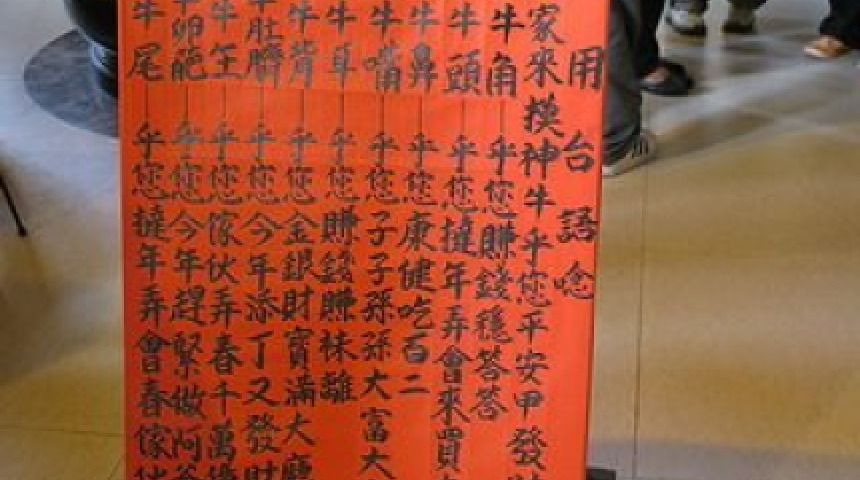 用台語唸
家來摸神牛乎您平安甲發
牛角 乎您賺錢穩答答
牛頭 乎您撻年弄會來買
牛鼻 乎您康健吃百二
牛嘴 乎您子子孫孫大富大
牛耳 乎您賺錢賺袜離
牛背 乎您金銀財寶滿大廳
牛肚臍 乎您今年添丁又發財
牛 乎您傢伙弄春千萬
卵葩 乎您今年趕緊做阿爸
牛尾 乎您撻年弄會春傢伙